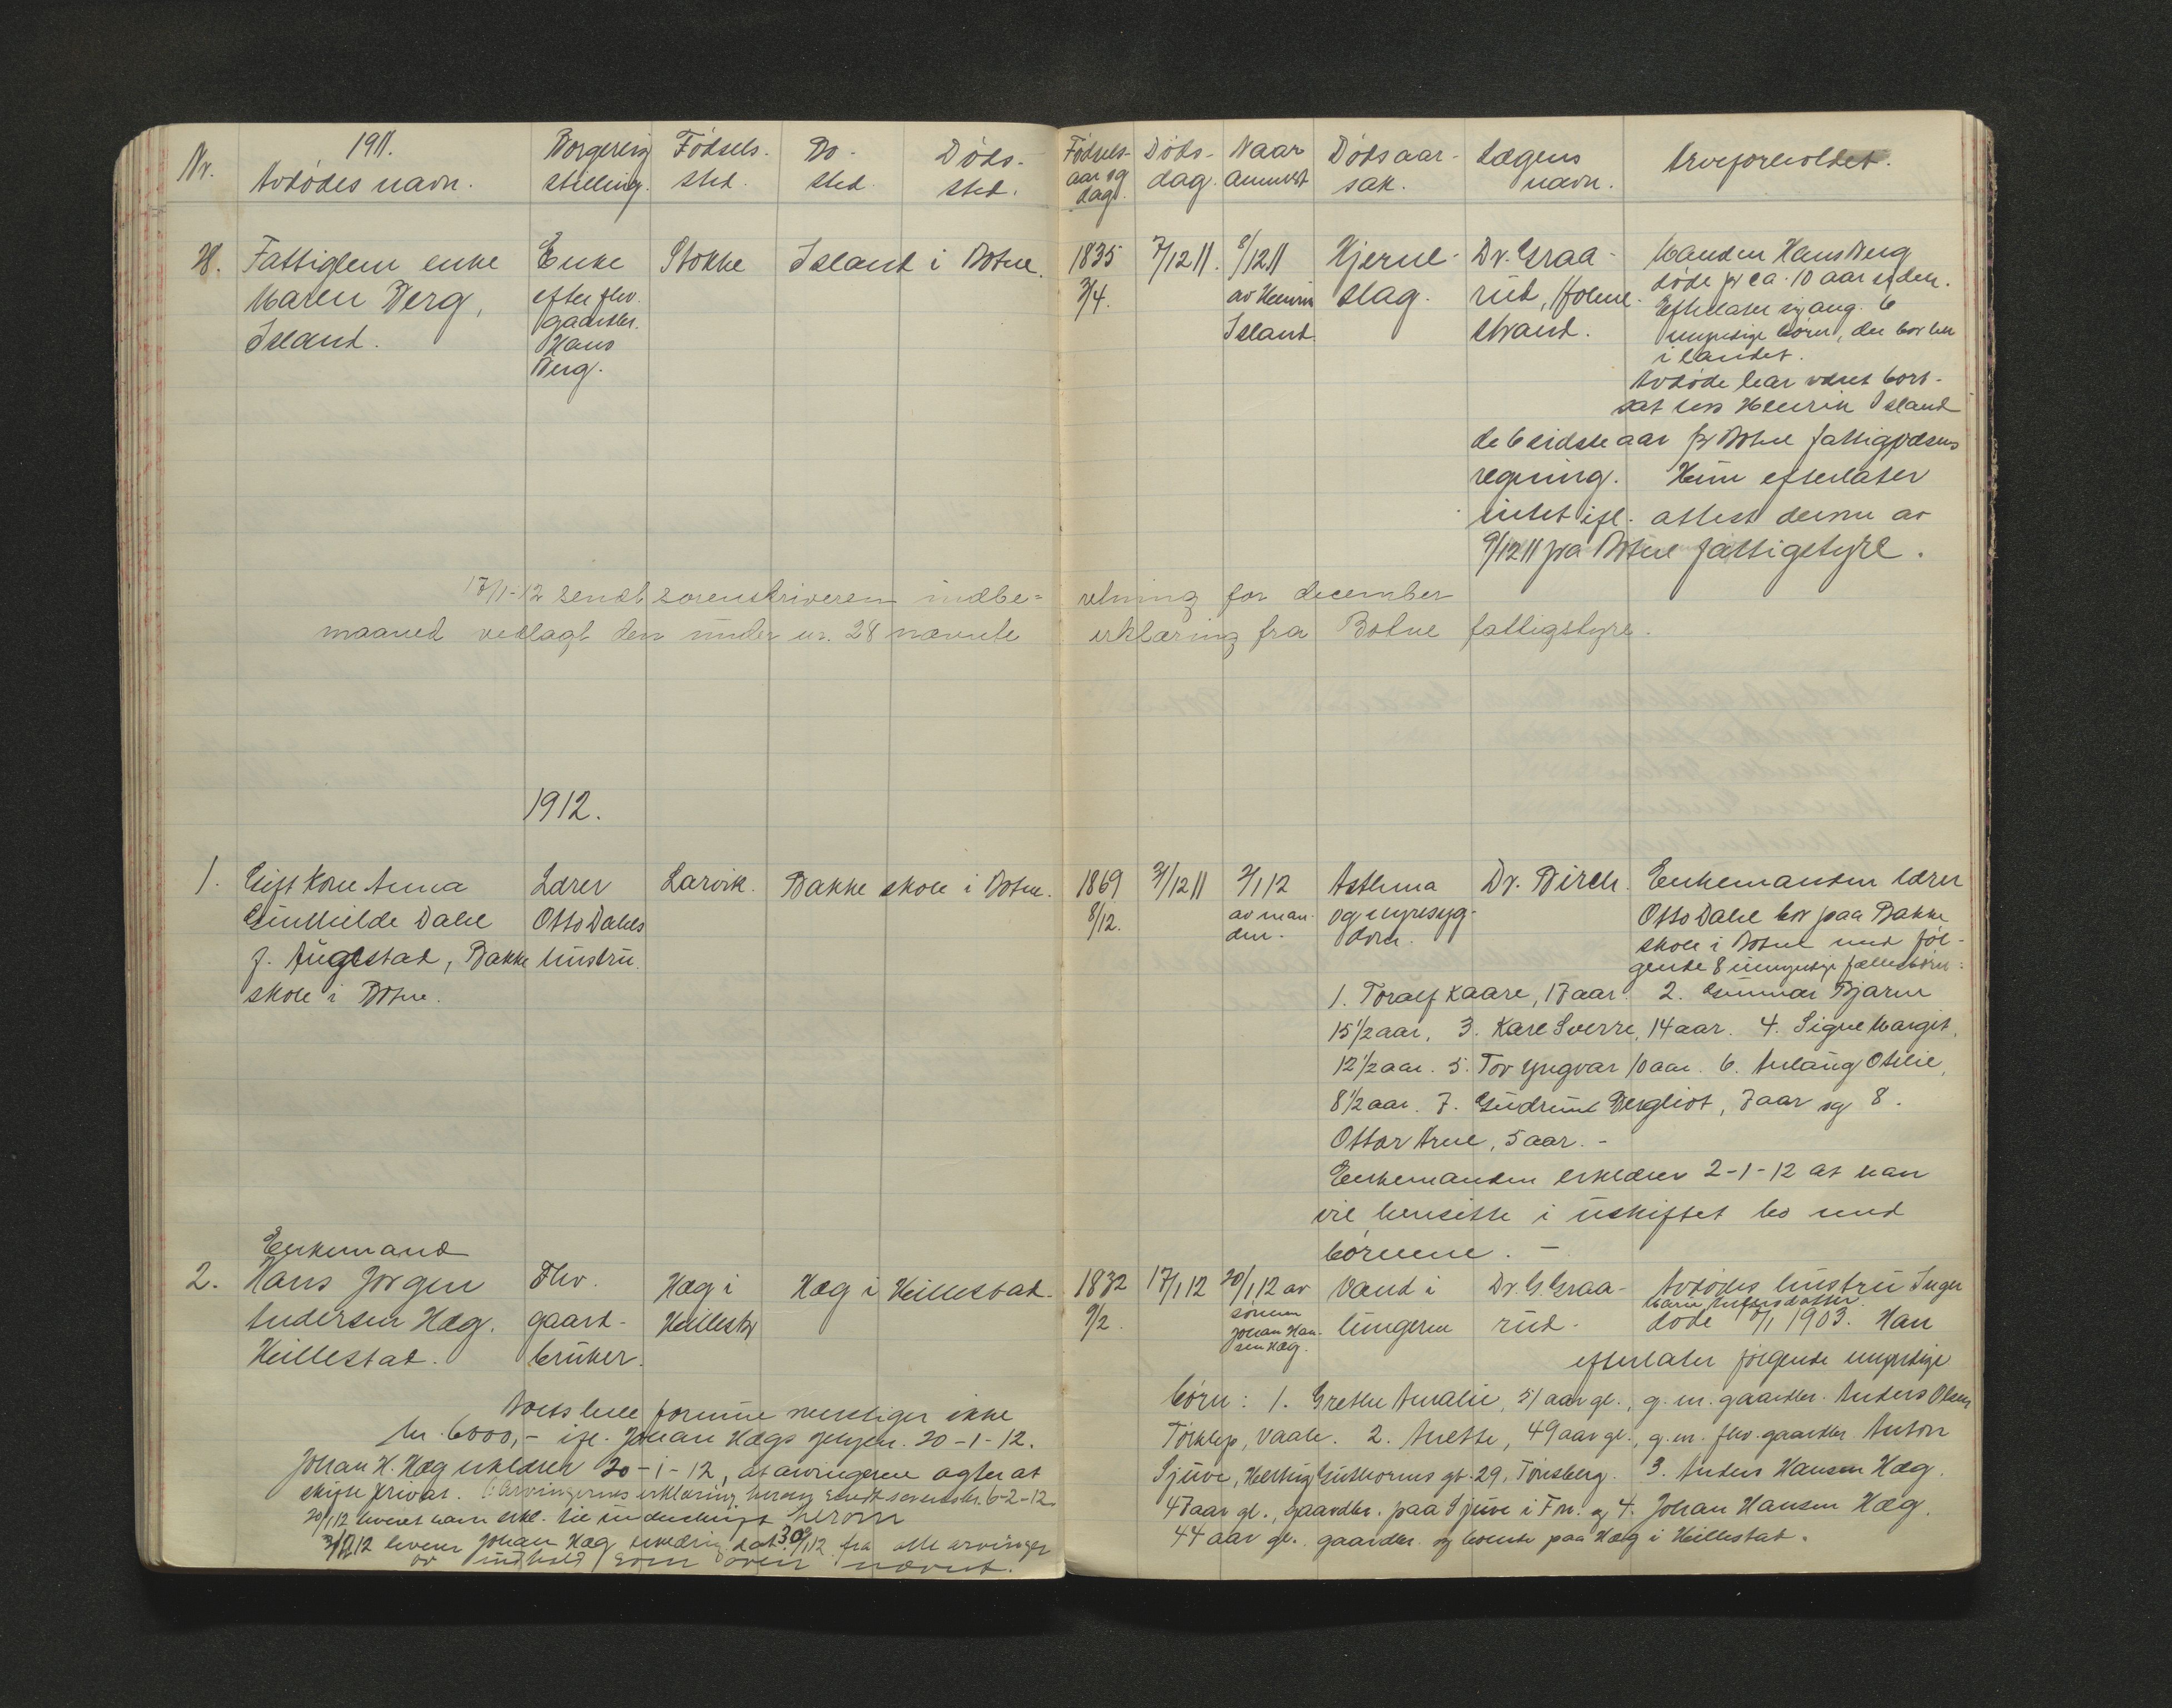 Nr.
1911.
Avdødes navn.
Borgerlig
stilling.
Fødsels-
sted.
Bo-
sted.
Døds-
sted.
Fødsels-
aar og
dag.
Døds-
dag.
Naar
anmeldt
Dødsaar-
sak.
Lægens
navn.
Arveforholdet.
28.
Fattiglem enke
Maren Berg,
Island.
Enke
efter fhv.
gaardbr.
Hans
Berg.
Stokke
Island i Botne.
1835
3/4.
7/12 11.
8/12 11
av Henrik
Island.
Hjerne-
slag.
Dr. Graa-
rud, Holme-
strand.
Manden Hans Berg
døde for ca. 10 aar siden.
Efterlater sig ang. 6
umyndige børn, der bor her
i landet.
Avdøde har været bort-
sat hos Henrik Island
de 6 sidste aar for Botne fattigvæsens
regning. Hun efterlater
intet ifl. attest derom av
9/12 11 fra Botne fattigstyre.
17/1-12 sendt sorenskriveren indbe=
retning for december
maaned vedlagt den under nr. 28 nævnte
erklæring fra Botne fattigstyre.
1912.
1.
Gift kone Anna
Gunhilde Dahl
f. Augestad, Bakke
skole i Botne.
Lærer
Otto Dahls
hustru.
Larvik.
Bakke skole i Botne.
1869
8/12.
31/12 11
2/1 12
av man-
den.
Asthma
og nyresyg-
dom.
Dr. Birch.
Enkemanden lærer
Otto Dahl bor paa Bakke
skole i Botne med føl-
gende 8 umyndige fællesbørn:
1. Toralf Kaare, 17 aar. 2. Gunnar Bjarne
15 1/2 aar, 3. Karl Sverre, 14 aar. 4. Signe Margit,
12 1/2 aar. 5. Tov Yngvar 10 aar. 6. Aslaug Otilie,
8 1/2 aar. 7. Gudrun Bergliot, 7 aar og 8.
Ottar Arne, 5 aar. -
Enkemanden erklærer 2-1-12 at han
vil hensitte i uskiftet bo med
børnene. -
2.
Enkemand
Hans Jørgen
Andersen Hæg.
Hillestad.
Fhv.
gaard-
bruker.
Hæg i
Hillestad
Hæg i Hillestad.
1832
9/2.
17/1 12
20/1 12 av
sønnen
Johan Han-
sen Hæg.
Vand i
lungerne
Dr. G. Graa-
rud.
Avdødes hustru Inger
Marie Andersdatter
døde 1903. Han
efterlater følgende myndige
børn: 1. Grethe Amalie, 51 aar gl., g. m. gaardbr. Anders Olsen
Torklep, Vaale. 2. Anette, 49 aar gl., g. m. fhv. gaardbr. Anton
Sjuve, Hertug Guthorms gt. 29, Tønsberg. 3. Anders Hansen Hæg.
47 aar gl., gaardbr. paa Sjuve i Fon. og 4. Johan Hansen Hæg.
44 aar gl. gaardbr. og boende paa Hæg i Hillestad.
Boets hele formue overstiger ikke
kr. 6000,- ifl. Johan Hægs 20-1-12.
Johan H. Hæg erklærer 20-1-12, at arvingerne agter at
skifte privat. Arvingernes erklæring herom sendt sorenskr. 6-2-12.
20/1 12 leveret ham erkl. til underskrift herom
12 leverer Johan Hæg erklæring dat. 30/1 12 fra alle arvinger
av indhold som oven nævnt.